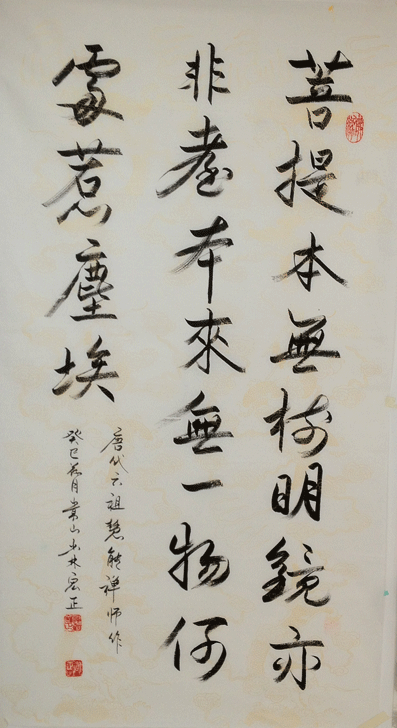 菩提本無樹明鏡亦
非臺本來無一物何
處惹塵埃
唐代六祖慧能禅师作
癸巳 月嵩山少林宏正